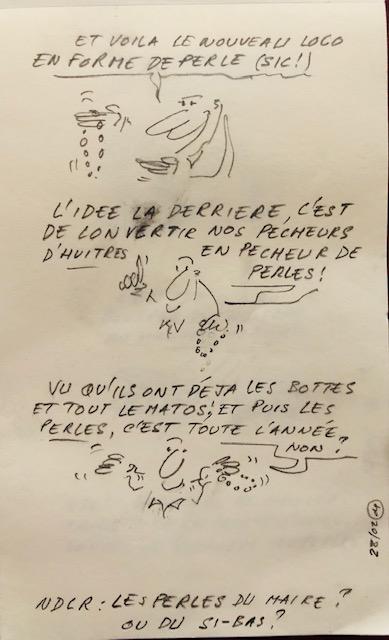 ET VOILA LE NOUVEAU LOGO
EN FORME DE PERLE (SIC!)
L'IDEE LA DERRIERE, C'EST
DE CONVERTIR NOS PECHEURS
D'HUITRES EN PECHEUR DE
PERLES!
VU QU'ILS ONT DÉJA LES BOTTES
ET TOUT LE MATOS! ET PUIS LES
PERLES, C'EST TOUTE L'ANNÉE,
NON?
28/02
NDLR: LES PERLES DU MAIRE?
OU DU SI-BAS?